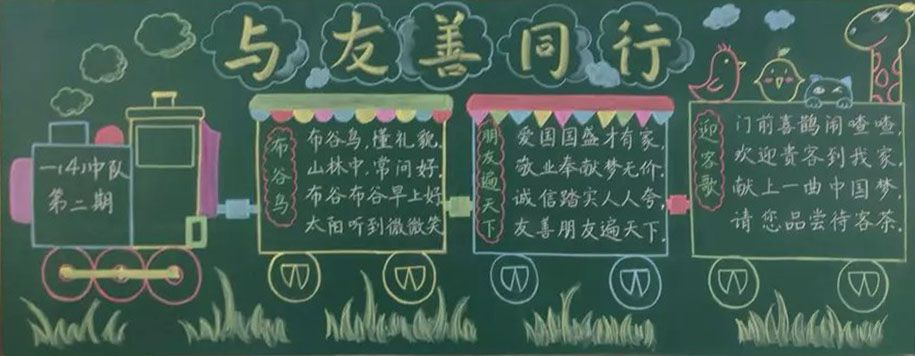 与友善同行
一(4)中队
第二期
布谷鸟
布谷鸟,懂礼貌,
山林中,常问好,
布谷布谷早上好
太阳听到微微笑
朋友遍天下
爱国国盛才有家,
敬业奉献梦无价,
诚信踏实人人夸,
友善朋友遍天下.
迎客歌
门前喜鹊闹喳喳,
欢迎贵客到我家,
献上一曲中国梦,
请您品尝待客茶.